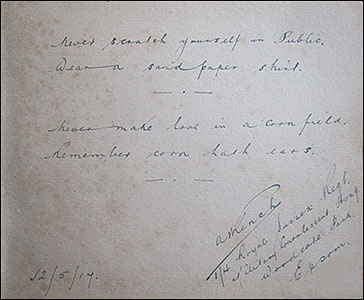 Never scratch yourself in Public,
Wear a sand paper shirt.
Never make love in a corn field.
Remember corn hath ears.
A Wench
1/4 Royal Sussex Regt.
Military Convalescent Hosp
Woodcote Park
Epsom.
12/5/17.